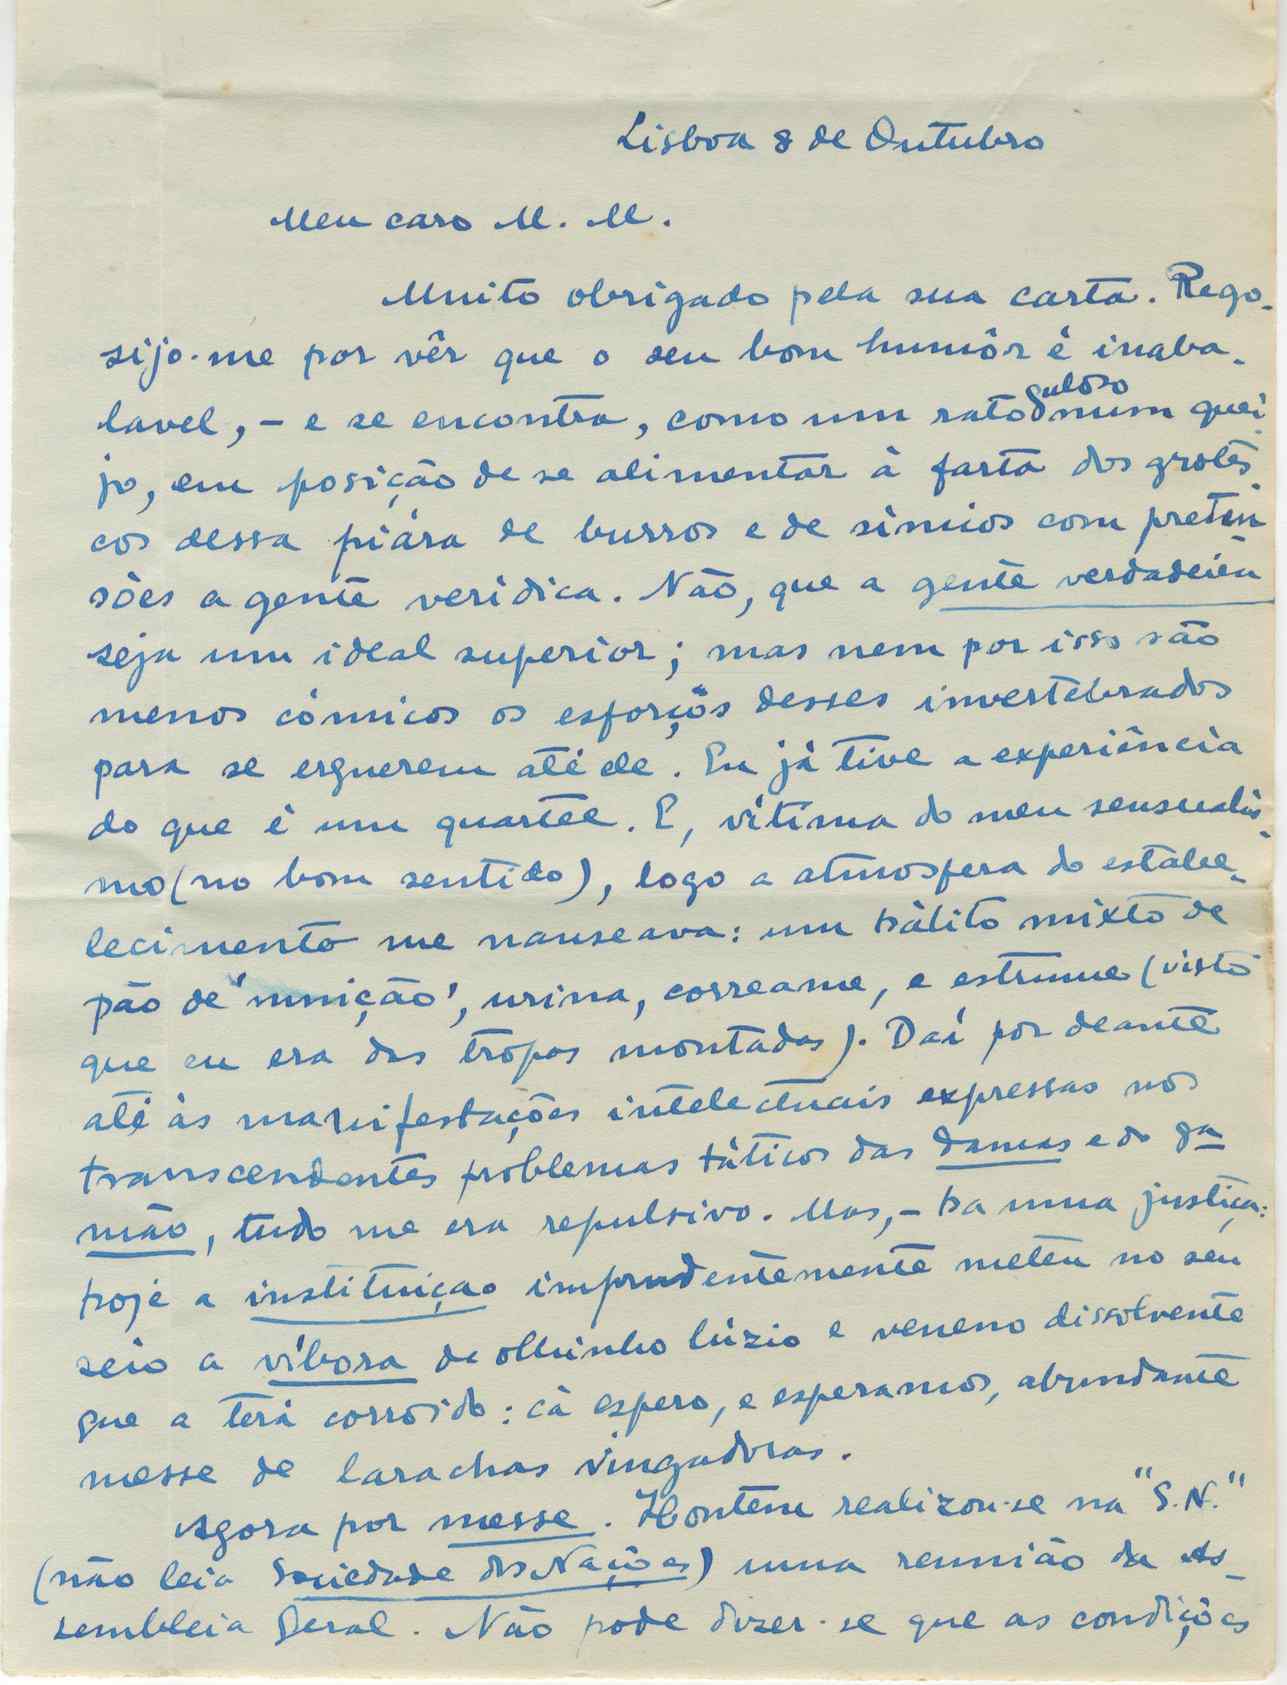 Lisboa 8 de Outubro
Meu caro M. M.
Muito obrigado pela sua carta. Rego-
sijo-me por vêr que o seu bom humôr é inaba-
lavel, – e se encontra, como um rato guloso num quei-
jo, em posição de se alimentar à farta dos grotés-
cos dessa piára de burros e de símios com preten-
sões a gente verídica. Não, que a gente verdadeira
seja um ideal superior; mas nem por isso são
menos cómicos os esforços desses invertebrados
para se erguerem até ele. Eu já tive a experiência
do que é um quartel. E, vítima do meu sensualis-
mo (no bom sentido), logo a atmosfera do estabe-
lecimento me nauseava: um hálito mixto de
pão de 'munição', urina, correame, e estrume (visto
que eu era das tropas montadas). Daí por deante
até às manifestações intelectuais expressas nos
transcendentes problemas táticos das damas e do ga-
mão, tudo me era repulsivo. Mas, – ha uma justiça:
hoje a instituiçao imprudentemente meteu no seu
seio a víbora de olhinho lúzio e veneno dissolvente
que a terá corroído: cá espero, e esperamos, abundante
messe de larachas vingadoras.
Agora por messe. Hontem realizou-se na "S.N."
(não leia Sociedade das Nações) uma reunião da As-
sembleia Geral. Não pode dizer-se que as condições